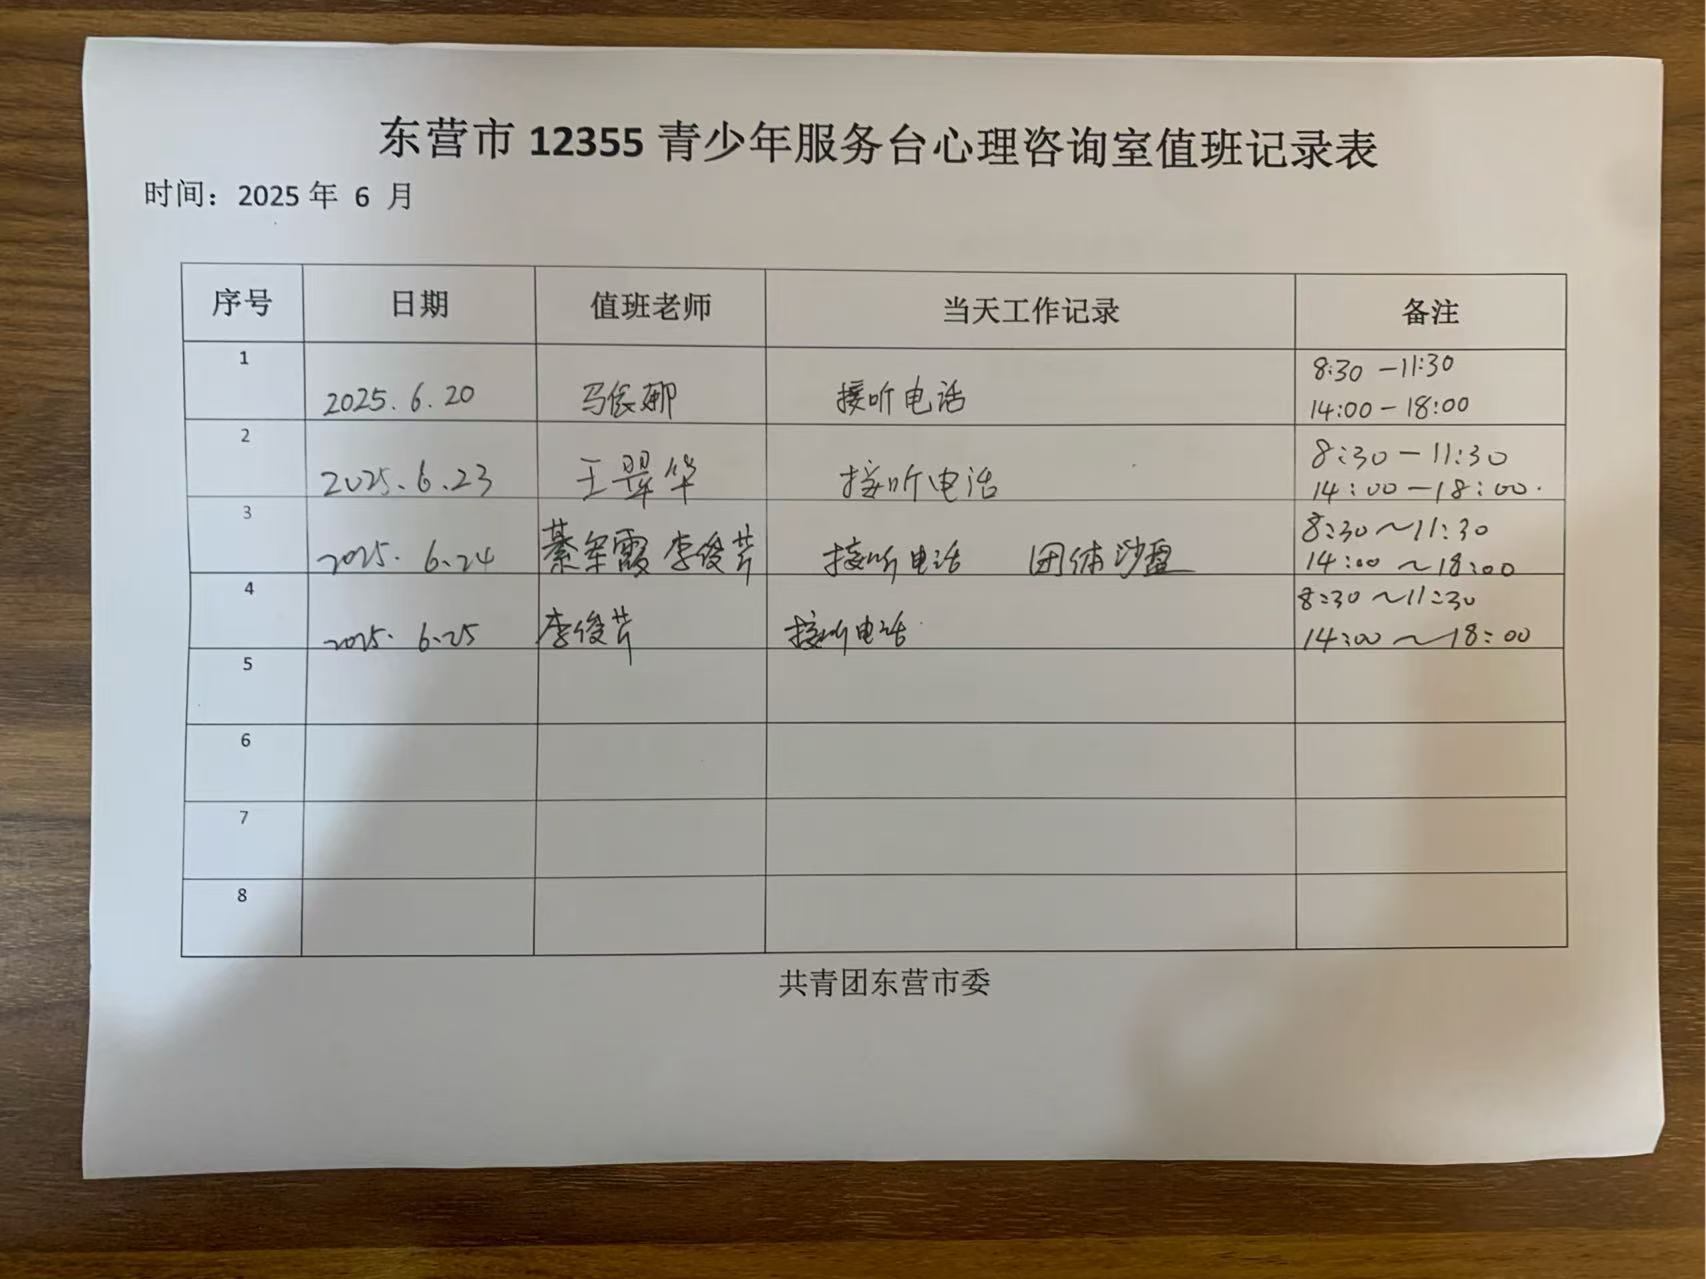 东营市 12355 青少年服务台心理咨询室值班记录表
时间：2025 年 6 月
序号 日期 值班老师 当天工作记录 备注
1 2025.6.20 马依娜 接听电话 8:30 — 11:30
14:00 — 18:00
2 2025.6.23 王翠华 接听电话 8:30 — 11:30
14:00 — 18:00.
3 2025.6.24 綦军霞 李俊芹 接听电话 团体沙盘 8:30 ～ 11:30
14:00 ～ 18:00
4 2025.6.25 李俊芹 接听电话 8:30 ～ 11:30
14:00 ～ 18:00
5
6
7
8
共青团东营市委